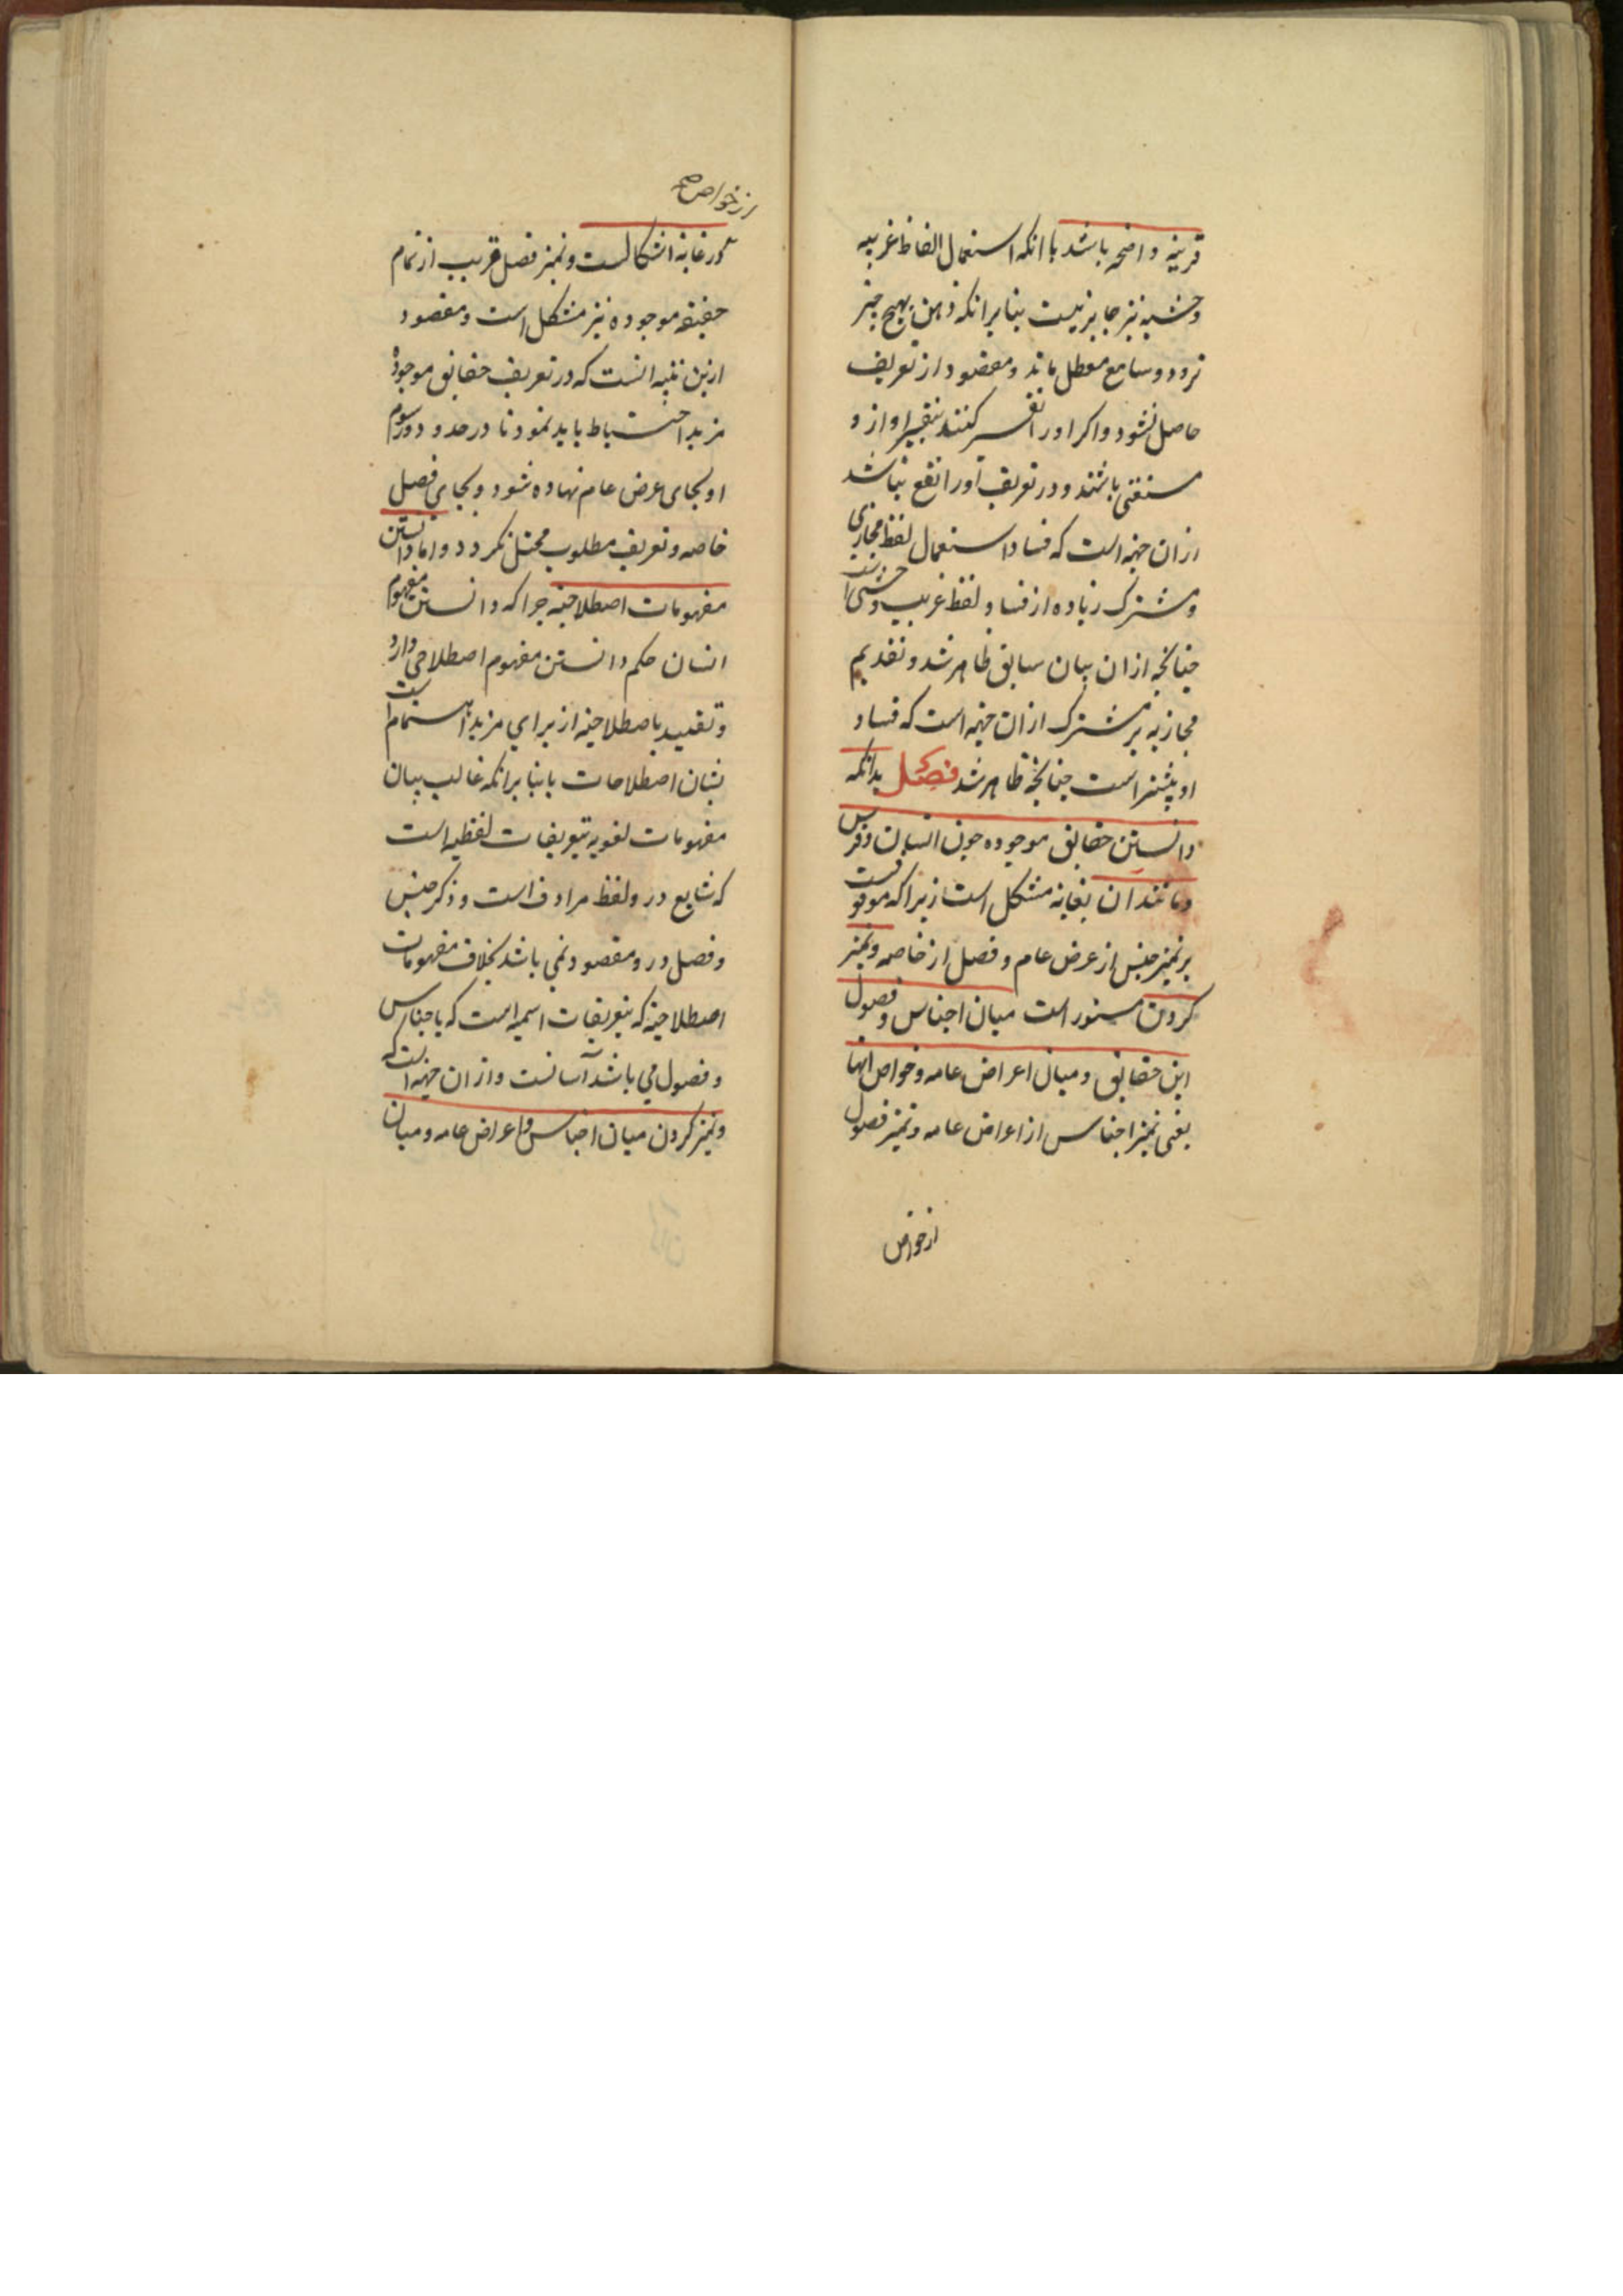 قرینه واضحه باشد با انکه استعمال الفاظ غریبه
وحشیه نیز جایز نیست بنابر انکه ذهن بهیچ چیز
نرود و سامع معطل ماند و مقصود از تعریف
حاصل نشود و اکر او را تفسیر کنند بتفسیر او از و
مستغنی باشند و در تعریف او را نفع نباشد
از ان جهة است که فساد استعمال لفظ مجازی
و مشترک زیاده از فساد لفظ غریب وحشی است
چنانچه از ان بیان سابق ظاهر شد و تقدیم
مجاز به بر مشترک از ان جهة است که فساد
او بیشتر است چنانچه ظاهر شد فصل بدانکه
دانستن حقایق موجوده چون انسان و فرس
و مانند ان بغایة مشکل است زیرا که موقوفست
بر تمیز جنس از عرض عام و فصل از خاصه و تمیز
کردن دستور است میان اجناس و فصول
این حقایق و میان اعراض عامه و خواص انها
یعنی تمیز اجناس از اعراض عامه و تمیز فصول
از خواص
از خواص صح
در غایة اشکالست و تمیز فصل قریب از تمام
حقیقة موجوده نیز مشکل است و مقصود
ازین تنبیه انست که در تعریف حقایق موجوده
مزید احتیاط باید نمود تا در حدود و رسوم
او بجای عرض عام نهاده نشود و بجای فصل
خاصه و تعریف مطلوب مختل نکردد و اما دانستن
مفهومات اصطلاحیه چرا که دانستن مفهوم
انسان حکم دانستن مفهوم اصطلاحی دارد
و تقیید باصطلاحیه از برای مزید اهتمام است
بشان اصطلاحات یا بنابر انکه غالب بیان
مفهومات لغویه بتعریفات لفظیه است
که شایع در و لفظ مرادف است و ذکر جنس
و فصل در و مقصود نمی باشد بخلاف مفهومات
اصطلاحیه که بتعریفات اسمیه است که باجناس
و فصول می باشد آسانست و از ان جهة است که
و تمیز کردن میان اجناس و اعراض عامه و میان